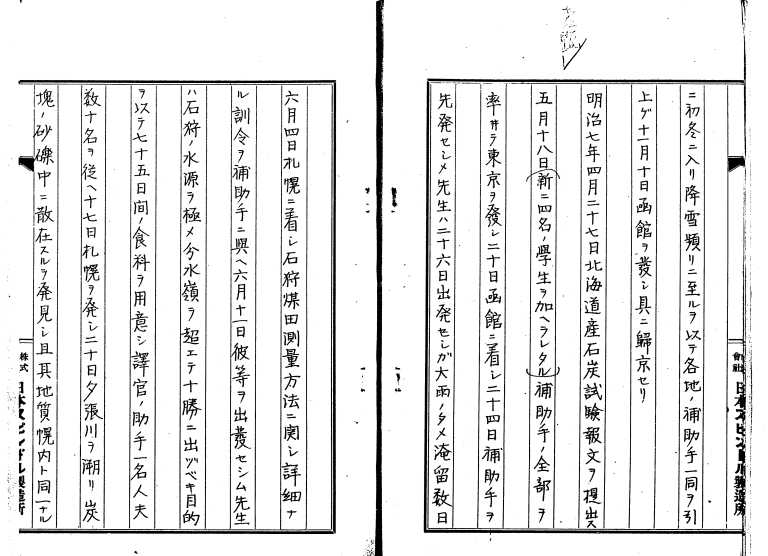 ニ初冬ニ入リ降雪頻リニ至ルヲ以テ各地ノ補助手一同ヲ引
上ゲ十一月十日函館ヲ發シ具ニ歸京セリ
明治七年四月二十七日北海道産石炭試験報文ヲ提出ス
五月十八日新ニ四名ノ學生ヲ加ヘラレタル補助手ノ全部ヲ
率ヰテ東京ヲ發シ二十日函館ニ着シ二十四日補助手ヲ
先発セシメ先生ハ二十六日出発セシガ大雨ノタメ淹留数日
六月四日札幌ニ着シ石狩煤田測量方法ニ関シ詳細ナ
ル訓令ヲ補助手ニ與ヘ六月十一日彼等ヲ出發セシム先生
ハ石狩ノ水源ヲ極メ分水嶺ヲ超エテ十勝ニ出ヅベキ目的
ヲ以テ七十五日間ノ食料ヲ用意シ譯官ノ助手一名人夫
数十名ヲ従ヘ十七日札幌ヲ発シ二十日夕張川ヲ溯リ炭
塊ノ砂礫中ニ散在スルヲ発見シ且其地質幌内ト同一ナル
株式
會社